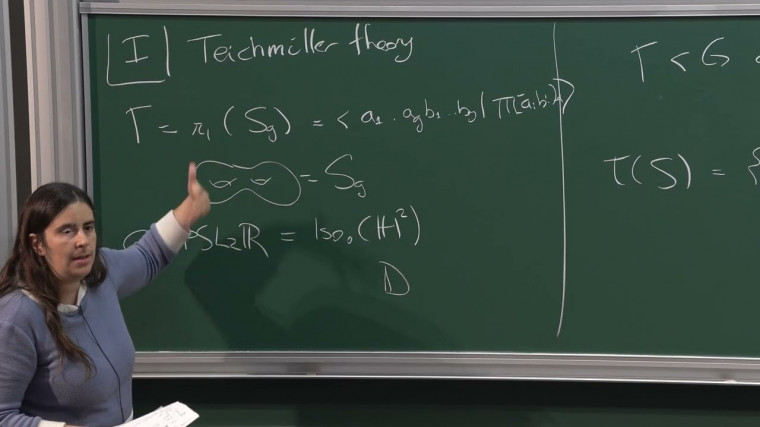 I Teichmüller theory
Γ = π₁(S_g) = <a₁..a_g b₁...b_g | Π[a_i b_i]>
= S_g
PSL₂ℝ = Iso₀(ℍ²)
D
Γ < G
T(S) = {